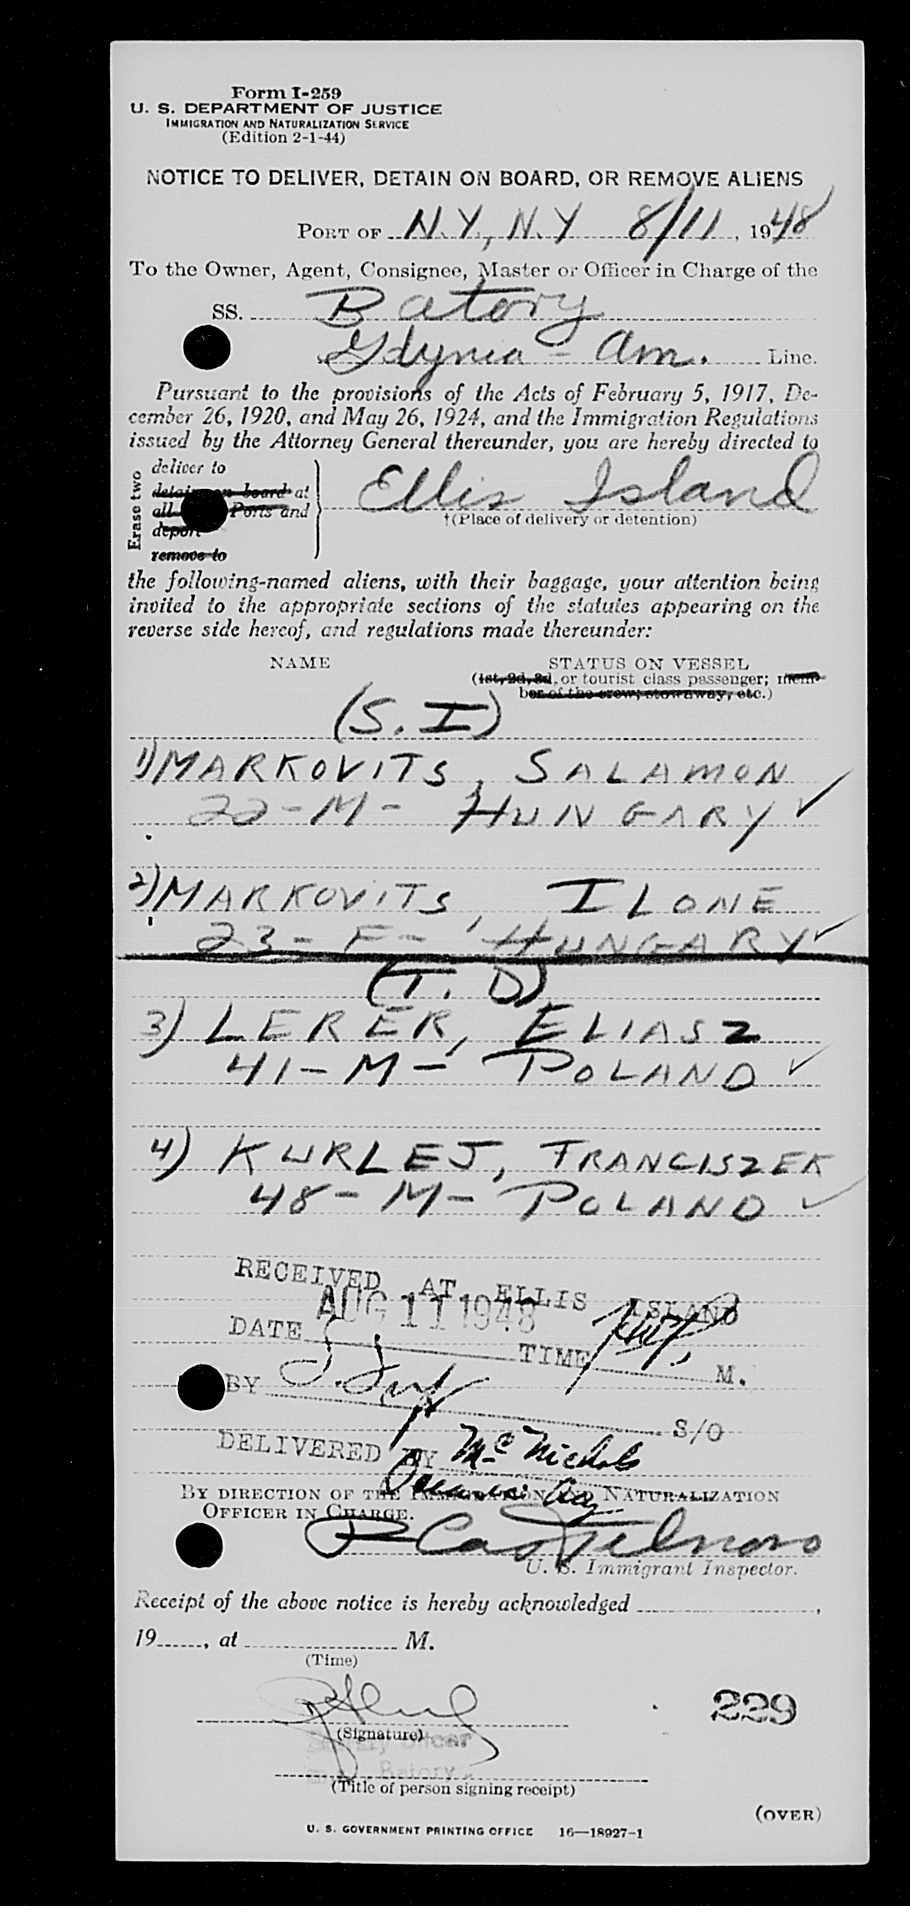 Form I-259
U. S. DEPARTMENT OF JUSTICE
IMMIGRATION AND NATURALIZATION SERVICE
(Edition 2-1-44)
NOTICE TO DELIVER, DETAIN ON BOARD, OR REMOVE ALIENS
PORT OF N.Y., N.Y 8/11, 1948
To the Owner, Agent, Consignee, Master or Officer in Charge of the
SS. Batory
Gdynia - Am. Line.
Pursuant to the provisions of the Acts of February 5, 1917, De-
cember 26, 1920, and May 26, 1924, and the Immigration Regulations
issued by the Attorney General thereunder, you are hereby directed to
Erase two
deliver to
detain on board at
all Ports and
deport
remove to
Ellis Island
†(Place of delivery or detention)
the following-named aliens, with their baggage, your attention being
invited to the appropriate sections of the statutes appearing on the
reverse side hereof, and regulations made thereunder:
NAME STATUS ON VESSEL
(1st, 2d, 3d, or tourist class passenger; mem-
ber of the crew; stowaway, etc.)
(S. I)
1) MARKOVITS, SALAMON
22-M- HUNGARY
2) MARKOVITS, ILONE
23-F- HUNGARY
(T. D)
3) LERER, ELIASZ
41-M- POLAND
4) KURLEJ, FRANCISZEK
48-M- POLAND
RECEIVED AT ELLIS ISLAND
AUG 11 1948
DATE TIME M.
BY S/O
DELIVERED BY McNichols
BY DIRECTION OF THE IMMIGRATION AND NATURALIZATION
OFFICER IN CHARGE.
U. S. Immigrant Inspector.
Receipt of the above notice is hereby acknowledged ,
19, at M.
(Time)
229
(Signature)
Officer
Batory
(Title of person signing receipt)
(OVER)
U. S. GOVERNMENT PRINTING OFFICE 16—18927-1